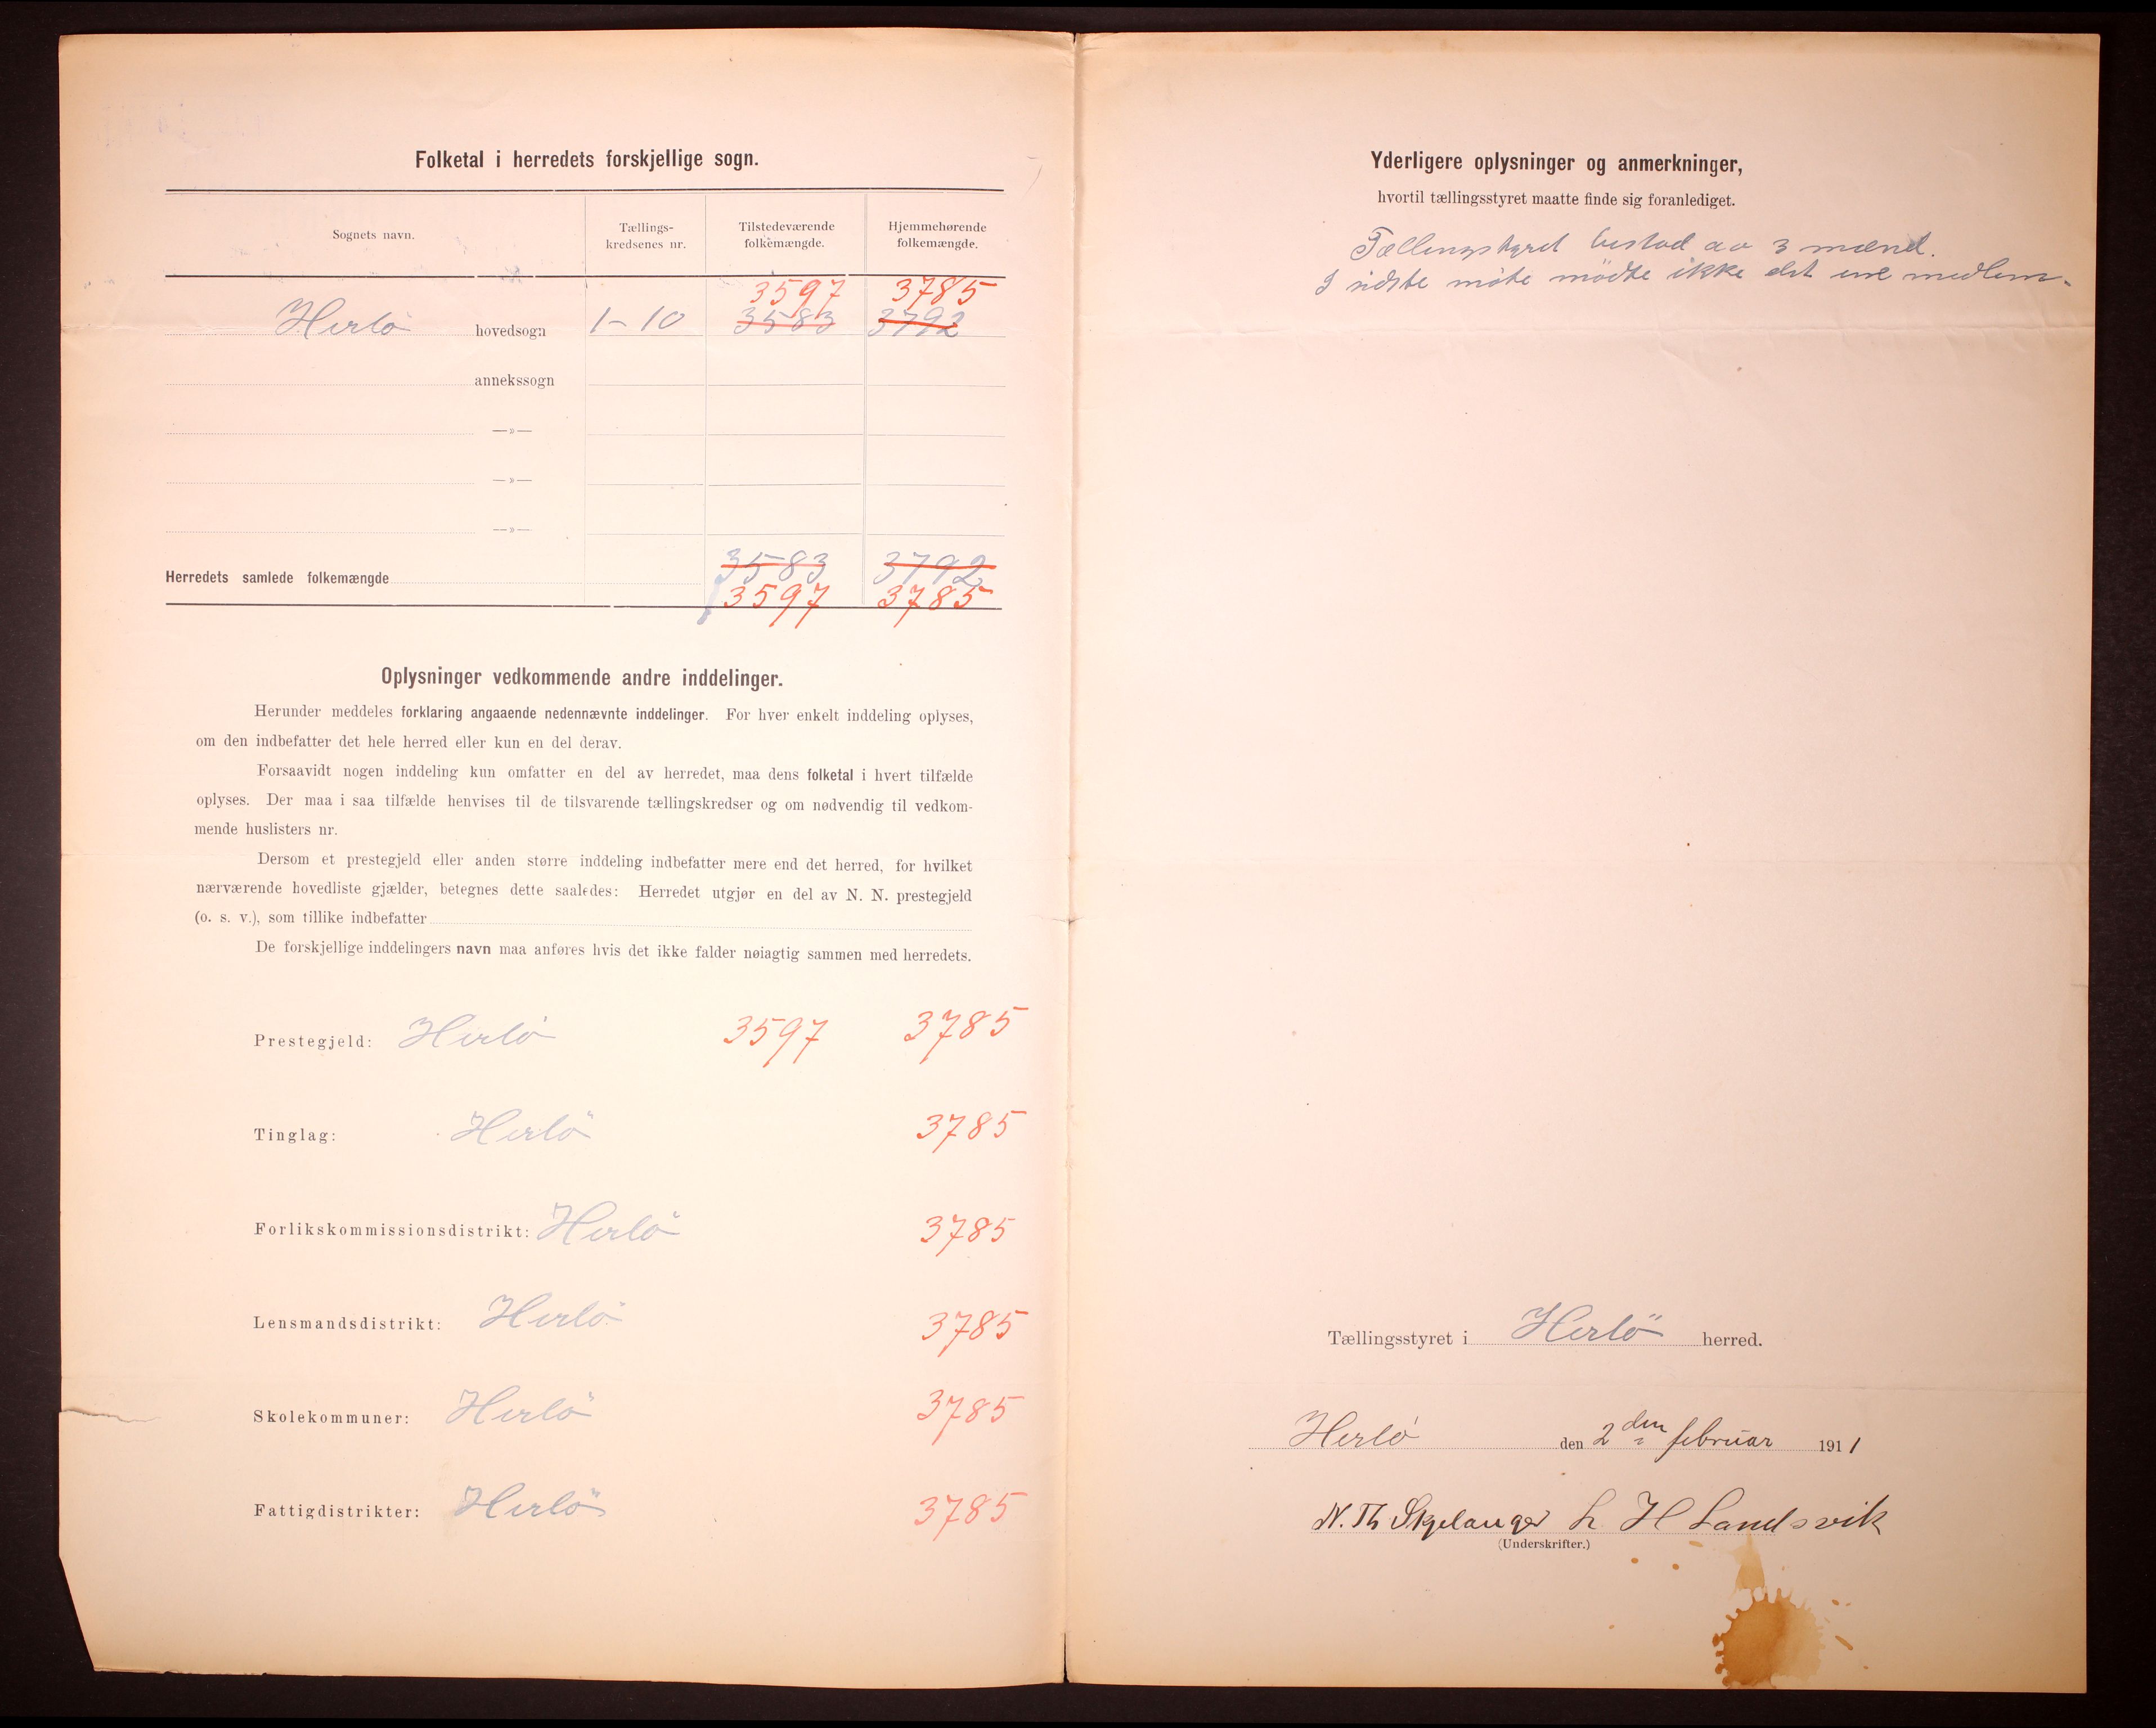 Folketal i herredets forskjellige sogn.
Sognets navn.
Tællings-
kredsenes nr.
Tilstedeværende
folkemængde.
Hjemmehørende
folkemængde.
3597 3785
Herlö hovedsogn 1–10 3583 3792
annekssogn
—»—
—»—
—»—
3583 3792
Herredets samlede folkemængde
3597 3785
Oplysninger vedkommende andre inddelinger.
Herunder meddeles forklaring angaaende nedennævnte inddelinger. For hver enkelt inddeling oplyses,
om den indbefatter det hele herred eller kun en del derav.
Forsaavidt nogen inddeling kun omfatter en del av herredet, maa dens folketal i hvert tilfælde
oplyses. Der maa i saa tilfælde henvises til de tilsvarende tællingskredser og om nødvendig til vedkom-
mende huslisters nr.
Dersom et prestegjeld eller anden større inddeling indbefatter mere end det herred, for hvilket
nærværende hovedliste gjælder, betegnes dette saaledes: Herredet utgjør en del av N. N. prestegjeld
(o. s. v.), som tillike indbefatter
De forskjellige inddelingers navn maa anføres hvis det ikke falder nøiagtig sammen med herredets.
Prestegjeld: Herlö 3597 3785
Tinglag: Herlö 3785
Forlikskommissionsdistrikt: Herlö 3785
Lensmandsdistrikt: Herlö 3785
Skolekommuner: Herlö 3785
Fattigdistrikter: Herlö 3785
Yderligere oplysninger og anmerkninger,
hvortil tællingsstyret maatte finde sig foranlediget.
Tællingstyret bestod av 3 mænd.
I sidste møte mødte ikke det ene medlem.
Tællingsstyret i Herlö herred.
Herlö den 2den februar 1911
N. Th Skjelanger L. H Landsvik
(Underskrifter.)